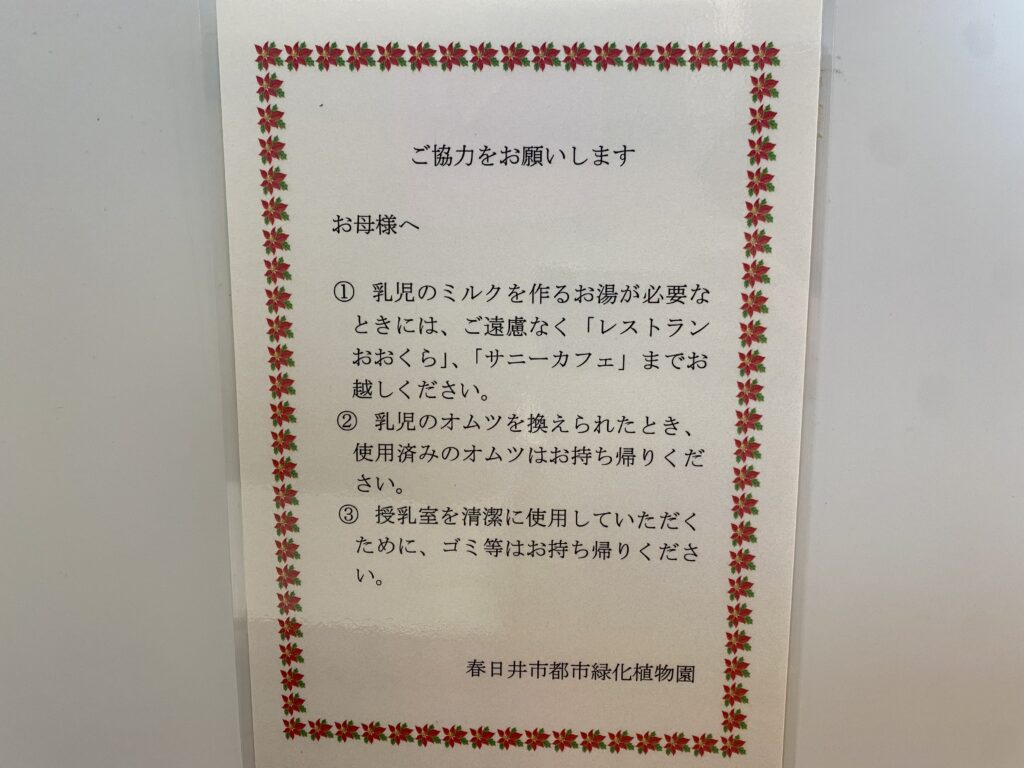 ご協力をお願いします
お母様へ
① 乳児のミルクを作るお湯が必要な
ときには、ご遠慮なく「レストラン
おおくら」、「サニーカフェ」までお
越しください。
② 乳児のオムツを換えられたとき、
使用済みのオムツはお持ち帰りくだ
さい。
③ 授乳室を清潔に使用していただく
ために、ゴミ等はお持ち帰りくださ
い。
春日井市都市緑化植物園